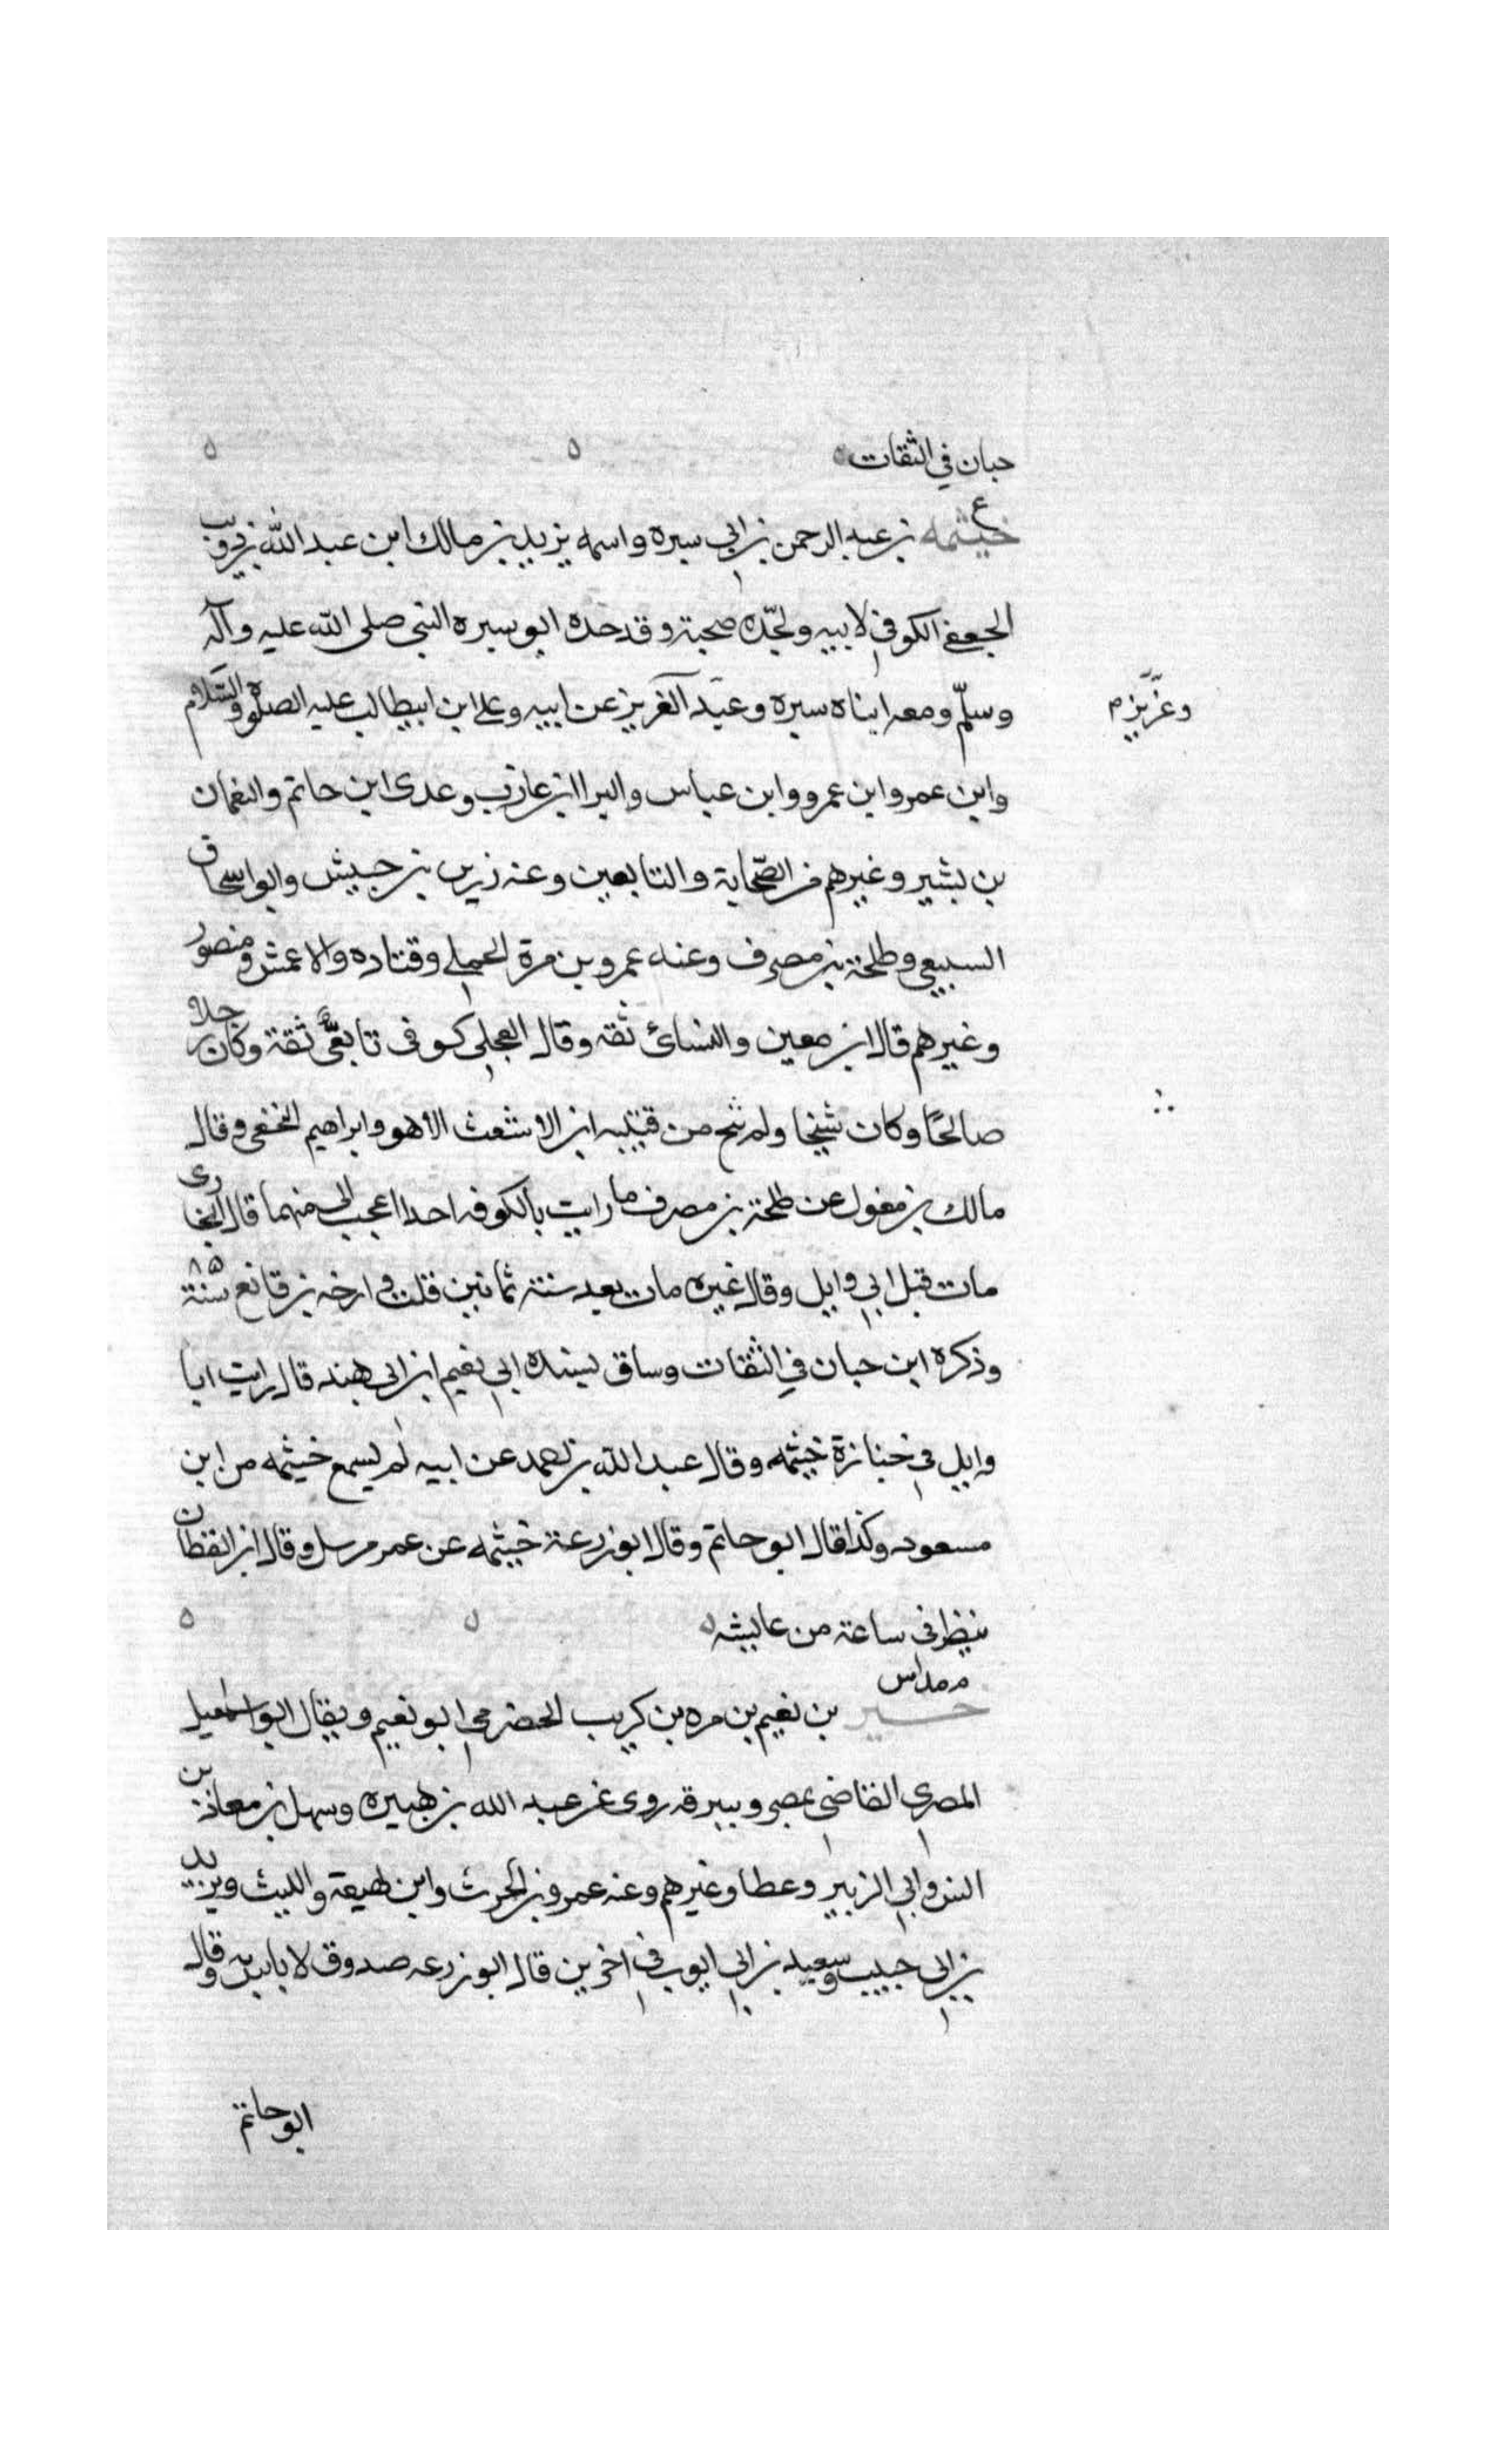 حبان في الثقات
ع
خيثمه بن عبد الرحمن بن ابي سبره واسمه يزيد بن مالك ابن عبد الله بن ذويب
الجعفى الكوفي لابيه ولجدّه صحبة وقد حده ابو سبره النبي صلى الله عليه وآله
وسلّم ومعه ابناه سبره وعبد العزيز عن ابيه وعلى ابن ابيطالب عليه الصلوة والسّلام
وعزيز م
وابن عمر وابن عمرو وابن عباس والبرا ابن عازب وعدى ابن حاتم والنعمان
بن بشير وغيرهم من الصّحابة والتابعين وعنه زر بن حبيش وابو اسحاق
السبيعي وطلحة بن مصرف وعنه عمرو بن مرة الجملي وقتاده والاعمش ومنصور
وغيرهم قال ابن معين والنسائ ثقه وقال العجلي كوفى تابعيّ ثقة وكان رجلا
صالحًا وكان شيخا ولم ينج من قتيبه ابن الاشعث الا هو وابراهيم النخعى وقال
مالك بن مغول عن طلحة بن مصرف ما رايت بالكوفه احدا اعجب الى منهما قال البخارى
مات قبل ابي وايل وقال غيره مات بعد سنة ثمانين قلت وارخه بن قانع سنة ٨٥
وذكره ابن حبان في الثقات وساق بسنده الى نعيم ابن ابى هند قال رايت ابا
وايل في جنازة خيثمه وقال عبد الله بن احمد عن ابيه لم يسمع خيثمه من ابن
مسعود وكذا قال ابو حاتم وقال ابو زرعة خيثمه عن عمر مرسل وقال ابن القطان
ينظر في ساعة من عايشه
م مداس
خير بن نعيم بن مره بن كريب الحضرمي ابو نعيم ويقال ابو اسماعيل
المصري القاضى بمصر وببرقه روى عن عبد الله بن هبيره وسهل بن معاذ بن
انس وابي الزبير وعطا وغيرهم وعنه عمرو بن الحرث وابن لهيعة والليث ويزيد
بن ابى حبيب وسعيد بن ابي ايوب في اخرين قال ابو زرعه صدوق لا باس به وقال
ابو حاتم